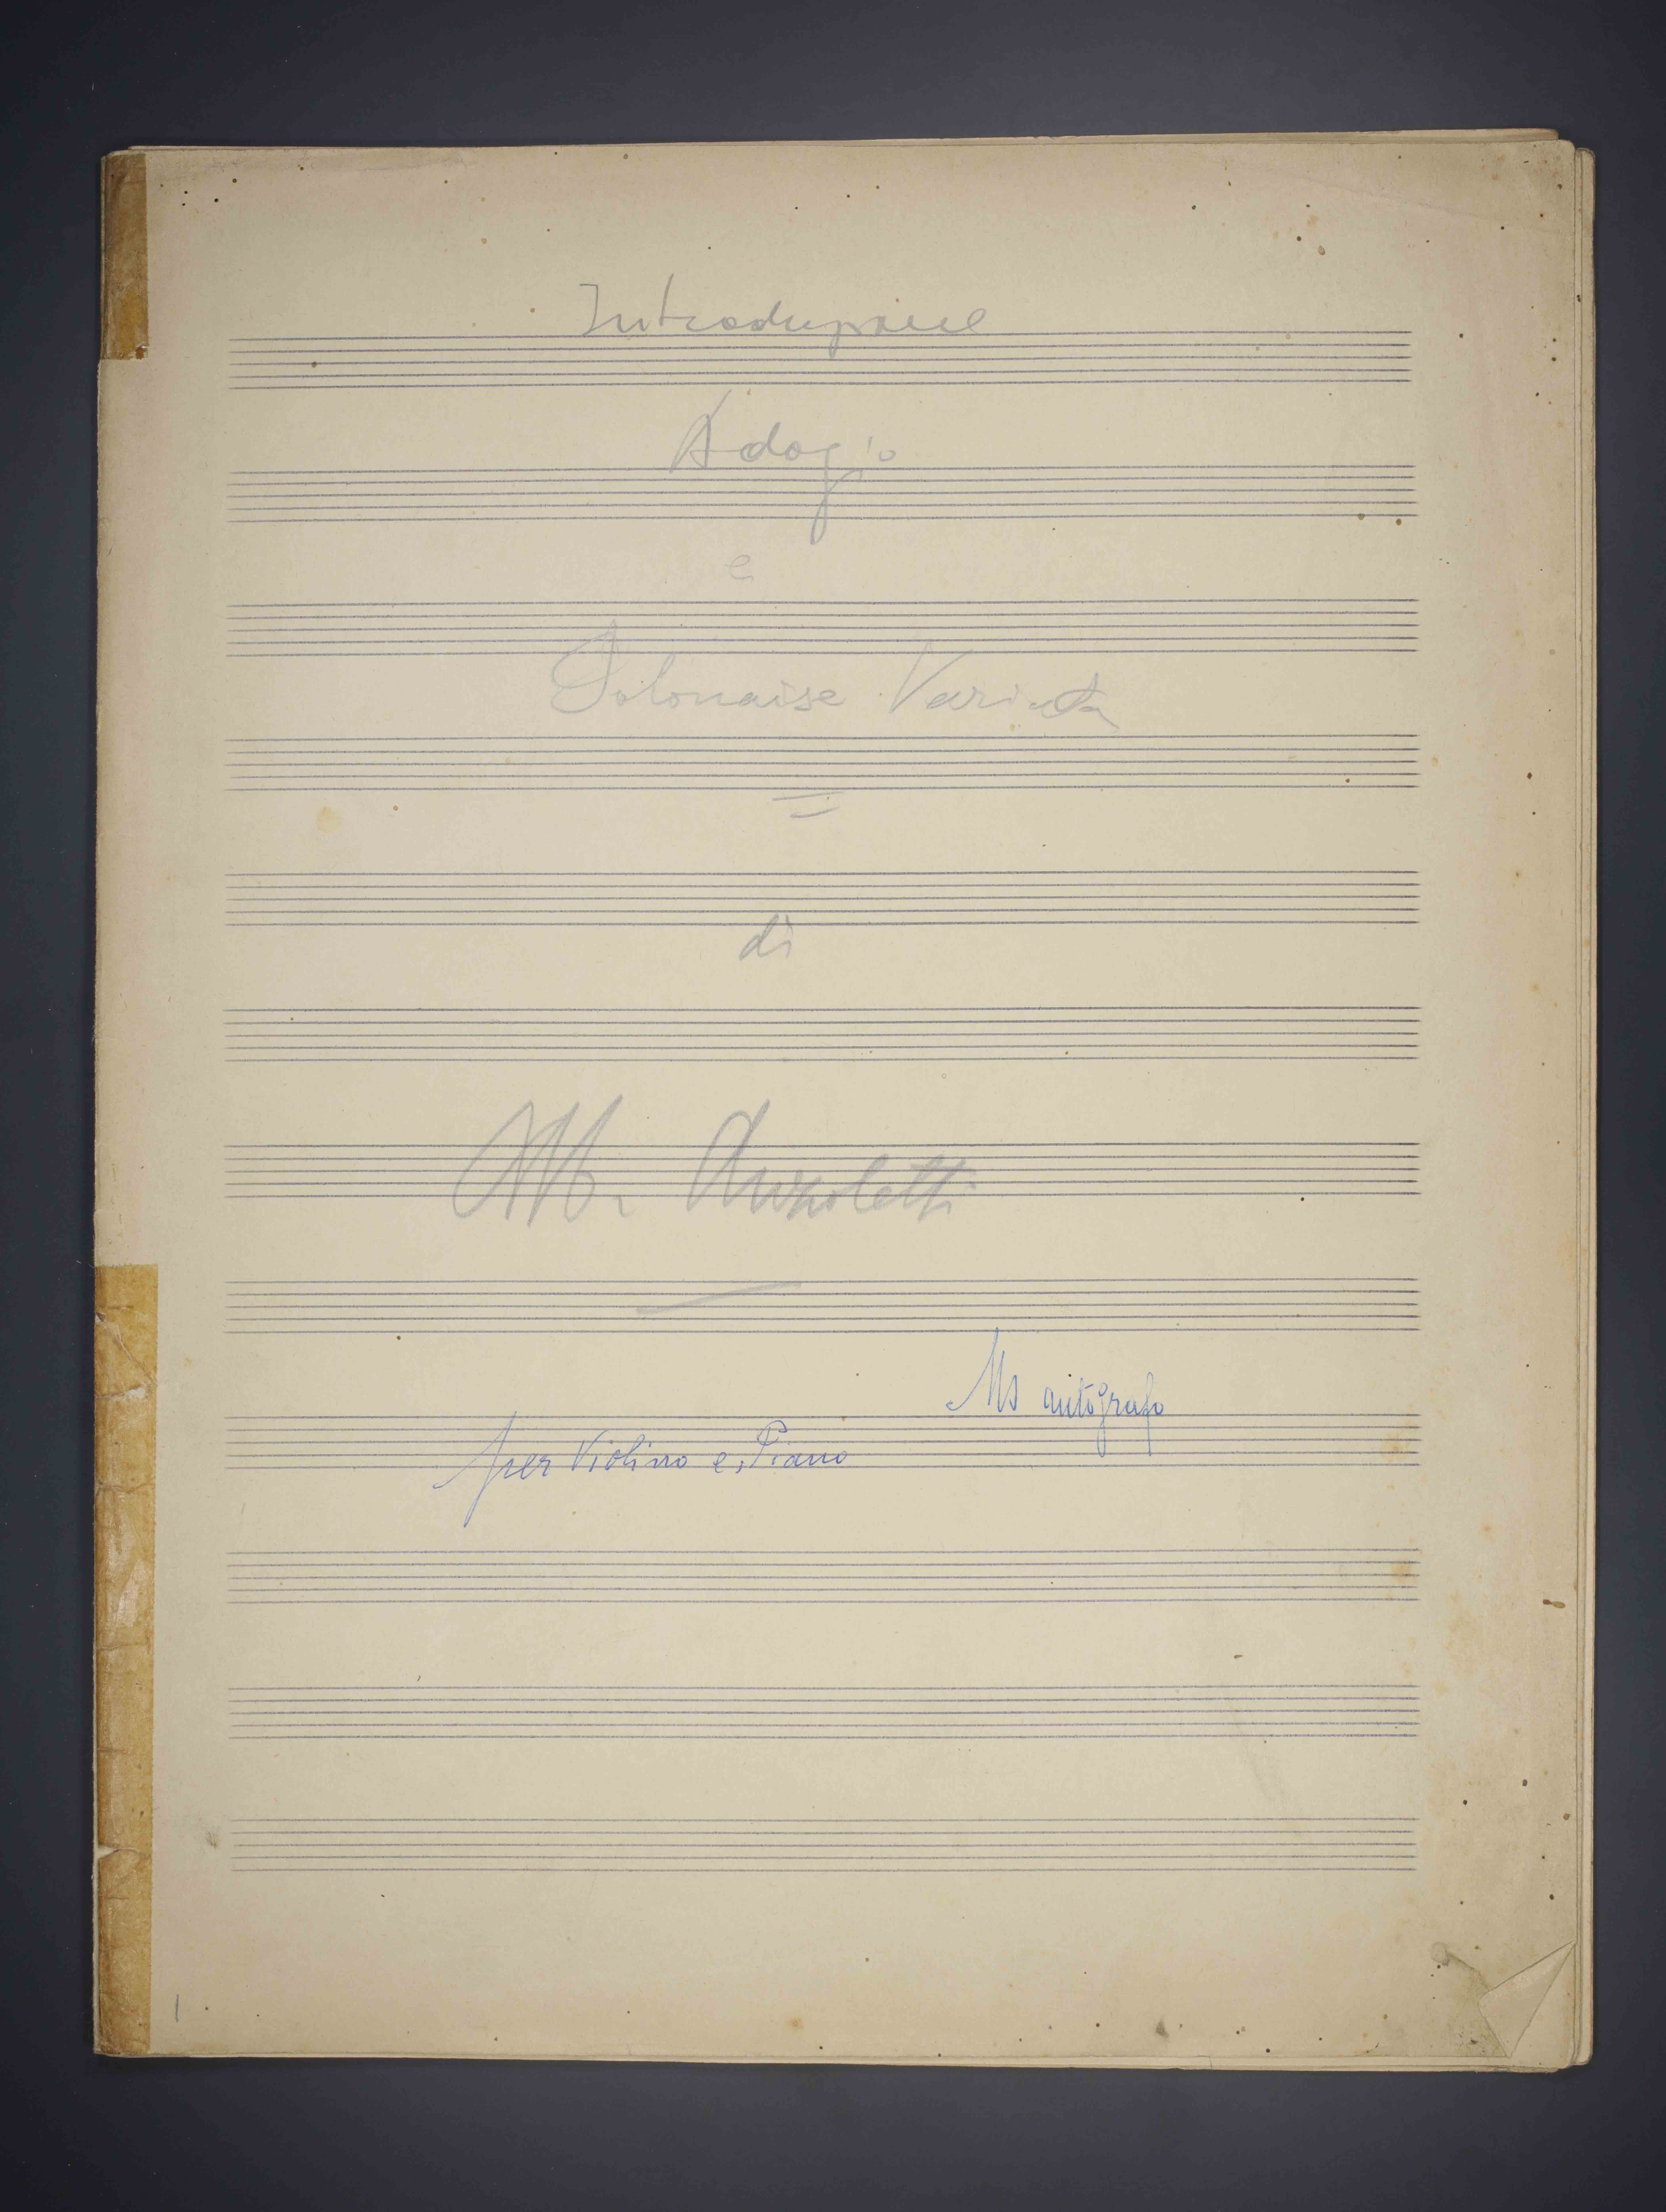 Introduzione
Adagio
e
Polonaise Variata
di
M. Anzoletti
Ms autografo
per Violino e Piano
1